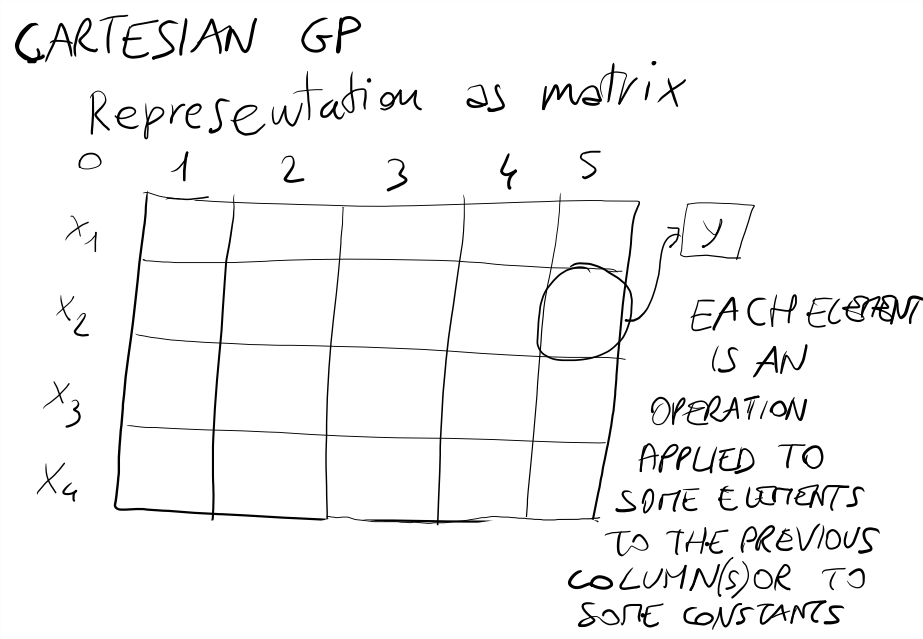 CARTESIAN GP
Representation as matrix
0 1 2 3 4 5
x1
y
x2
EACH ELEMENT
IS AN
x3
OPERATION
APPLIED TO
x4
SOME ELEMENTS
TO THE PREVIOUS
COLUMN(S) OR TO
SOME CONSTANTS